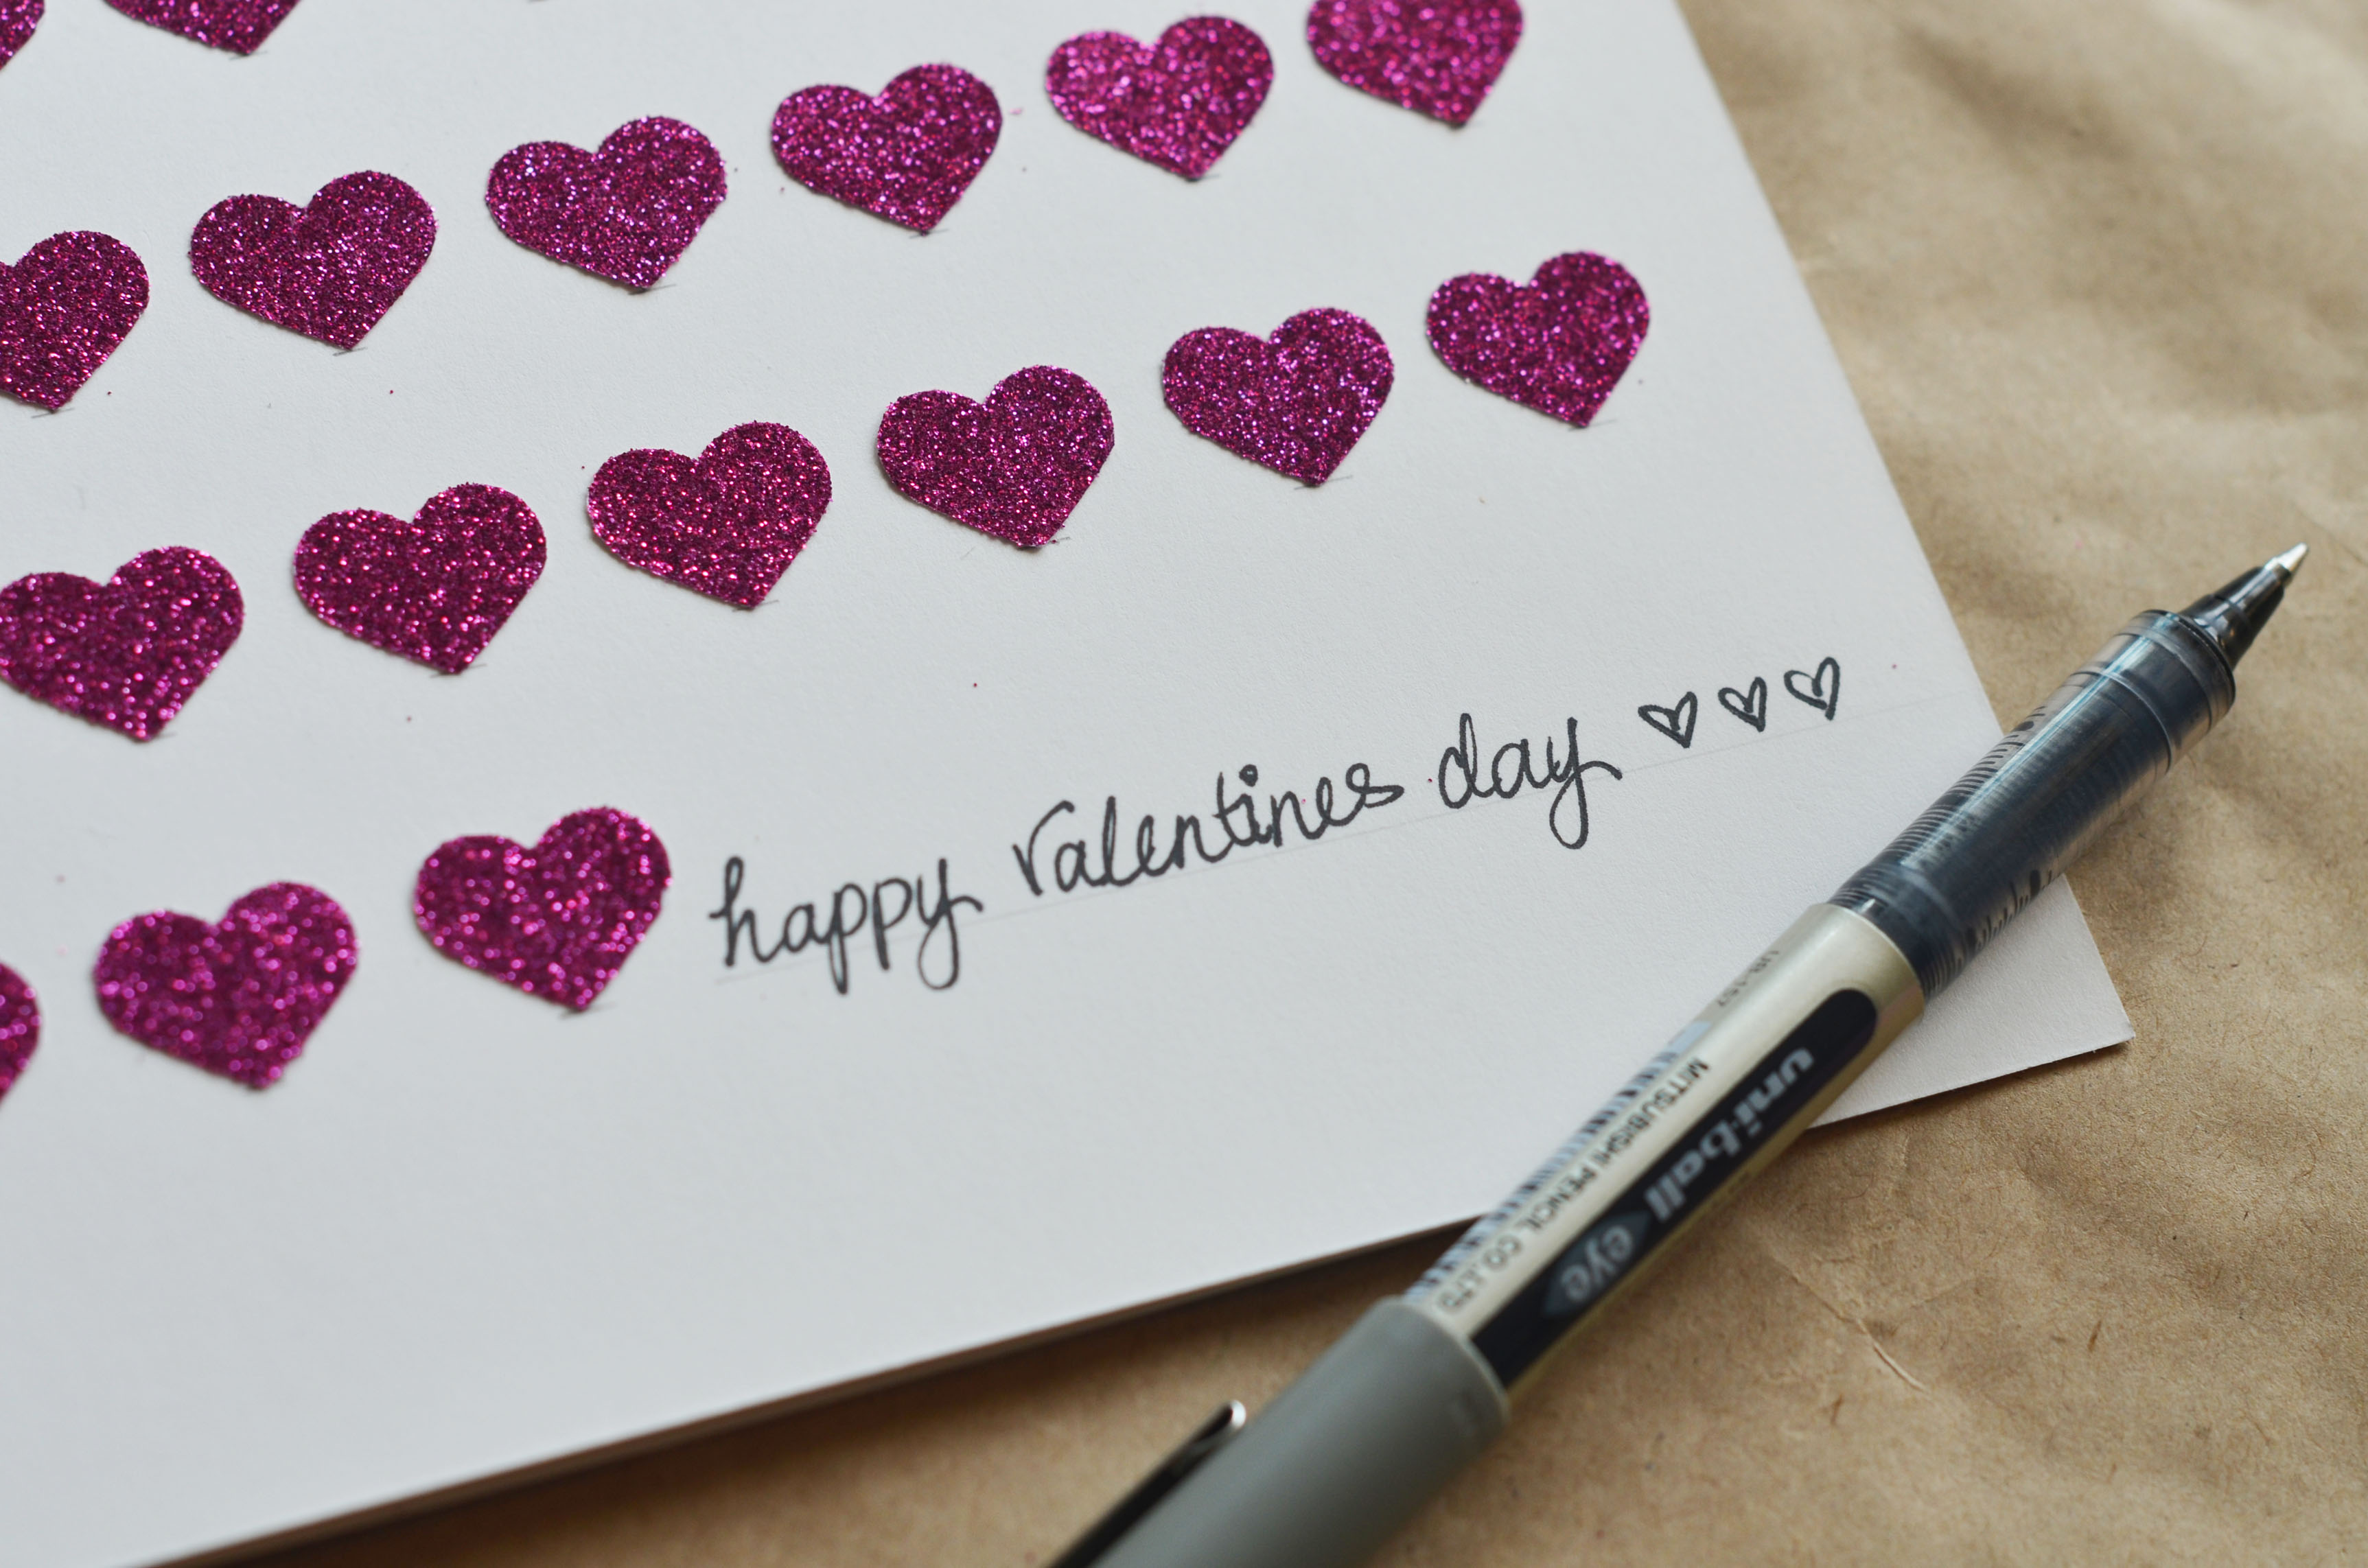 happy valentines day ♡ ♡ ♡
uni-ball eye
MITSUBISHI PENCIL CO.,LTD
UB-157